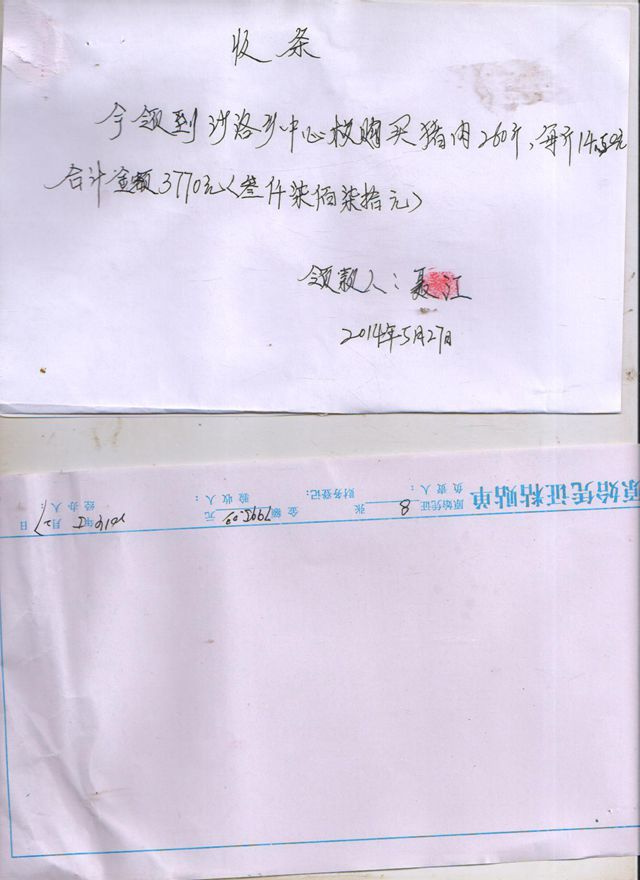 收条
今领到沙洛乡中心校购买猪肉260斤，每斤14.50元
合计金额3770元（叁仟柒佰柒拾元）
领款人：聂江
2014年5月27日
原始凭证粘贴单
原始凭证 8 张 金额 元 年 月 日
负责人： 财务登记： 验收人： 经办人：